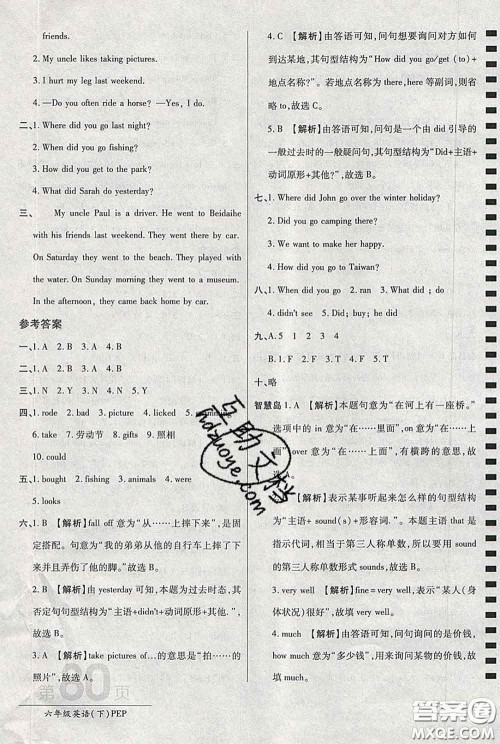 friends.
2. My uncle likes taking pictures.
3. I hurt my leg last weekend.
4. —Do you often ride a horse? —Yes, I do.
二、1. Where did you go last night?
2. When did you go fishing?
3. How did you get to the park?
4. What did Sarah do yesterday?
三、 My uncle Paul is a driver. He went to Beidaihe
with his friends last weekend. They went there by car.
On Saturday they went to the beach. They played with
the water. On Sunday morning they went to a museum.
In the afternoon, they came back home by car.
参考答案
一、1. A 2. B 3. A 4. B 5. A
二、1. C 2. B 3. C 4. B 5. A
三、1. N 2. Y 3. N 4. N 5. Y
四、1. rode 2. bad 3. picture 4. licked 5.
6. take 7. 劳动节 8. 骑马 9.
10. could
五、1. bought 2. fishing 3. animals 4.
5. looks
六、1. B 【解析】fall off 意为“从……上摔下来”,是固
定搭配。句意为“我的弟弟从他的自行车上摔了下
来”,故选 B。
2. B 【解析】由 yesterday 可知,本题为过去时态,其
否定句句型结构为“主语+didn't+动词原形+其
他”,故选 B。
3. A 【解析】take pictures of...的意思是“拍……的
照片”,故选 A。
第80页
六年级英语(下)PEP
4. C 【解析】由答语可知,问句想要询问对方如何
到达某地,其句型结构为“How did you go/get (to)+
地点名称?”若地点名称为 there, here 等副词,则省
略 to,故选 C。
5. B 【解析】由答语可知,问句是一个由 did 引导的
一般过去时的一般疑问句,其句型结构为“Did+主语+
动词原形+其他?”,故选 B。
七、1. Where did John go over the winter holiday?
2. Did you go camping there?
3. I want to make him happy!
4. How did you go to Taiwan?
八、1. When did you go 2. ran 3. What did, do
4. didn't see 5. Did; buy; he did
九、A. 5 1 2 4 3
B. 1. F 2. T 3. T 4. F 5. F
十、略
智慧岛 1. A 【解析】本题句意为“在河上有一座桥。”
选项中的 in 意为“在……里面”, on 意为“在……上
面”, over 意为“在……上面”,有横跨的意思,故
选
2. 【解析】表示某事听起来怎么样的句型结构
为“主语+ sound(s)+形容词.”。本题主语 that 是
指示代词,相当于第三人称单数,所以动词 sound
的第三人称单数为 sounds。故填 sounds。
3. very well 【解析】fine=very well,表示“某人(身
体状况)很好”,故填 very well。
4. much 【解析】由答语可知,问句询问的是价钱,
how much 意为“多少钱”,用来询问某物的价钱,
故填 much。
互助文档
hdzuoye.com
答案圈
MXQE.COM